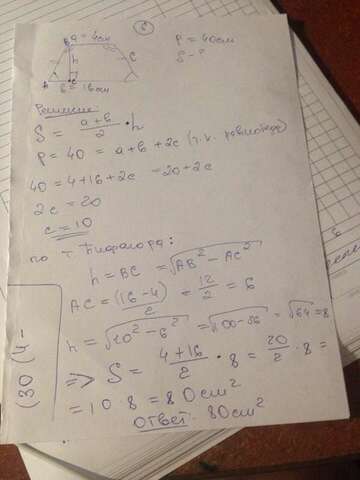 6
a = 4см
P = 40см
S - ?
B
h
c
A
C
b = 16см
Решение:
S = \frac{a+b}{2} \cdot h
P = 40 = a + b + 2c (т.к. равнобедр)
40 = 4 + 16 + 2c = 20 + 2c
2c = 20
c = 10
по т Пифагора:
h = BC = \sqrt{AB^2 - AC^2}
AC = \frac{(16-4)}{2} = \frac{12}{2} = 6
h = \sqrt{10^2 - 6^2} = \sqrt{100-36} = \sqrt{64} = 8
=> S = \frac{4+16}{2} \cdot 8 = \frac{20}{2} \cdot 8 =
= 10 \cdot 8 = 80см^2
Ответ: 80см^2
(30 (4-